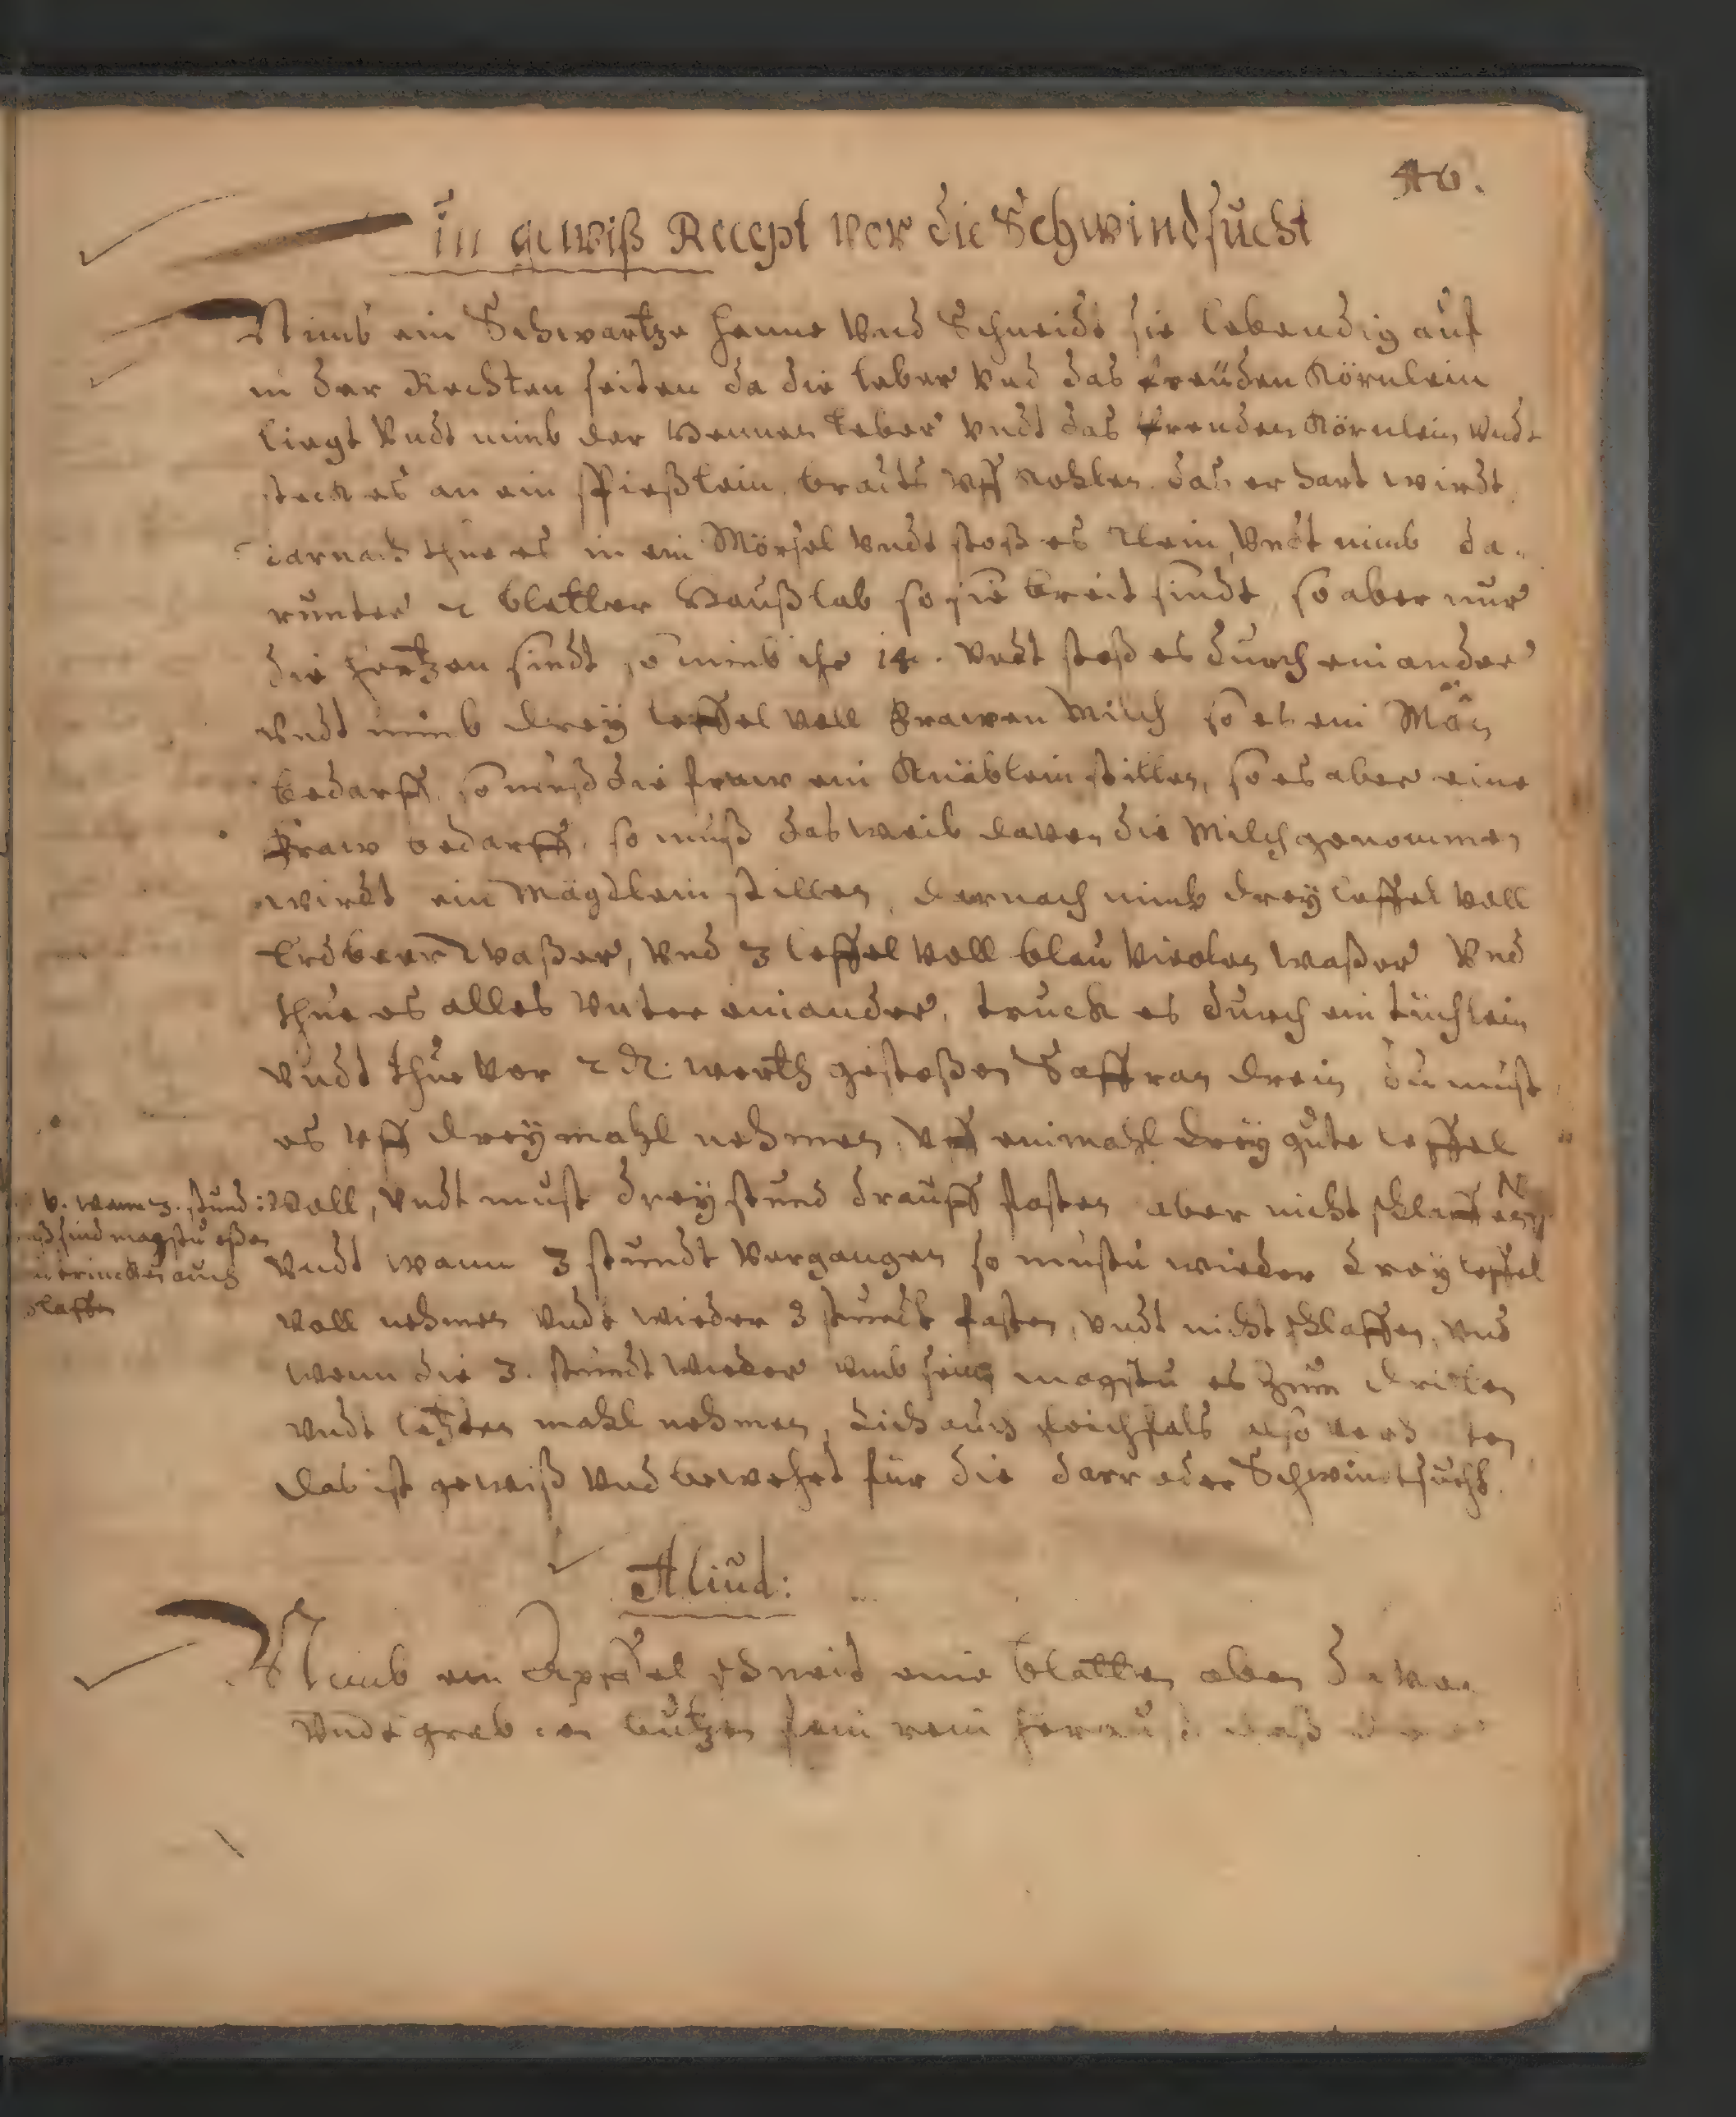 40.
Ein gewiß Recept vor die Schwindsucht
Nimb ein Schwartze henne Vnd Schneide sie lebendig auf
in der Rechten seiten da die leber Vnd das freüden Körnlein
liegt Vndt nimb der Hennen leber Vndt das freuden Körnlein, vndt
steck es an ein spießlein, brats vff Kohlen das er hart wirdt
darnach thue es in ein Mörsel Vndt stoß es klein, Vndt nimb da-
runter 7 bletter Haußlab so sie breit sindt, so aber nur
die hertzen sindt so nimb ihr 14. Vndt stoß es durch einander
Vndt nimb drey leffel voll Frawen Milch so es ein Man
bedarff, so muß die fraw ein Knäblein stillen, so es aber eine
Fraw bedarff, so muß das weib davon die Milch genommen
wirdt ein Mägdlein stillen, darnach nimb drey leffel Voll
Erdbeer Waßer, Vnd 3 leffel Voll blau Violen Waßer Vnd
thue es alles Vnter einander, truck es durch ein tüchlein
Vndt thue Vor 2 werth gestoßen Saffran drein, du must
es Vff drey mahl nehmen, Vff einmahl drey gute leffel
Voll, Vndt must drey stund drauff fasten aber nicht schlaffen
v. wann 3. stund:
auß sind magstu eßen
trincken auch
schlaffen
Vndt wann 3 stundt Vergangen so mustu wieder drey leffel
Voll nehmen Vndt wieder 3 stundt fasten, Vndt nicht schlaffen, Vnd
wenn die 3. stundt wieder vmb sein magstu es zum dritten
Vndt letzten mahl nehmen, dich auch also
das ist gewiß Vnd bewehrt für die darr oder Schwindtsucht.
Aliud:
Nimb ein Apffel schneid eine blatten oben
Vndt grab den butzen fein rein herauß daß